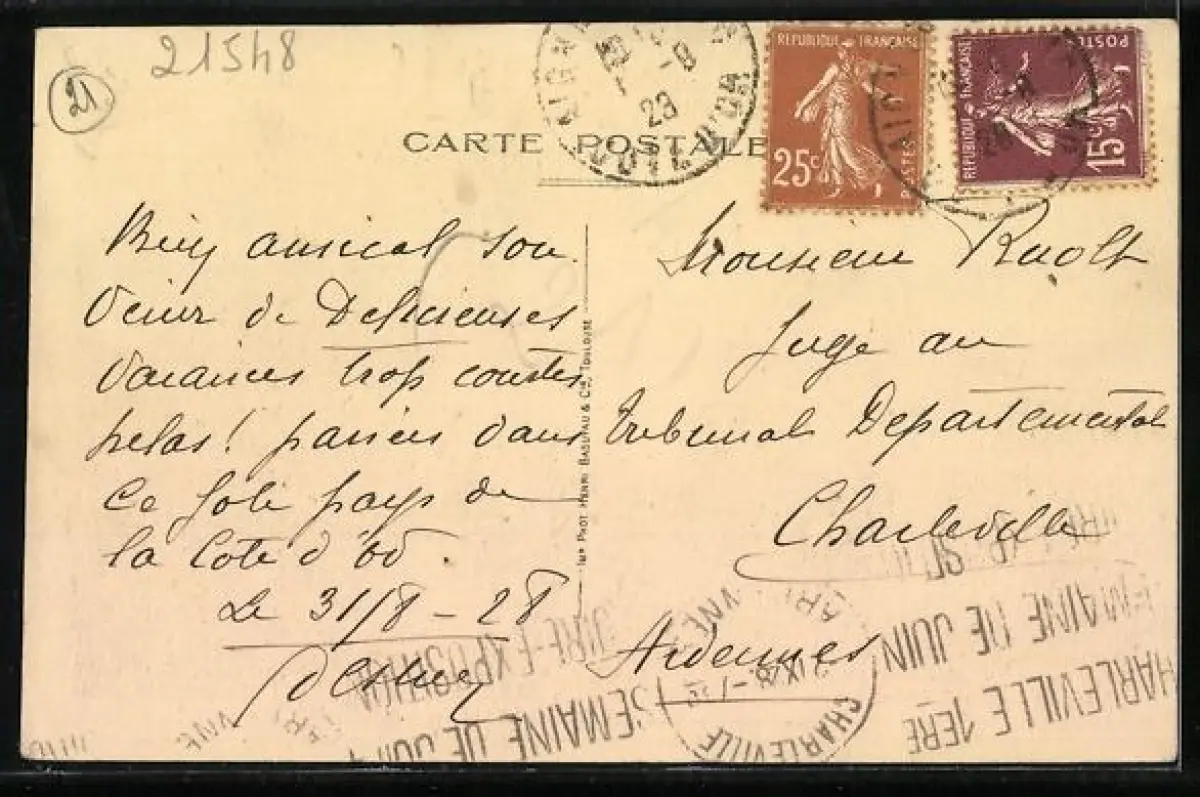 21548
21
CARTE POSTALE
28
REPUBLIQUE FRANÇAISE
25c
POSTES
REPUBLIQUE FRANÇAISE
POSTES
15c
Bien amical sou
venir de Delicieuses
vacances trop courtes
helas! passées dans
ce joli pays de
la Cote d'or.
Le 31/8 - 28
IMP PHOT HENRI BASUYAU & CIE TOULOUSE
Monsieur Raoult
Juge au
tribunal Departemental
Charleville
Ardennes
CHARLEVILLE 1ERE
SEMAINE DE JUIN
FOIRE-EXPOSITION
CHARLEVILLE
SEMAINE DE JUIN